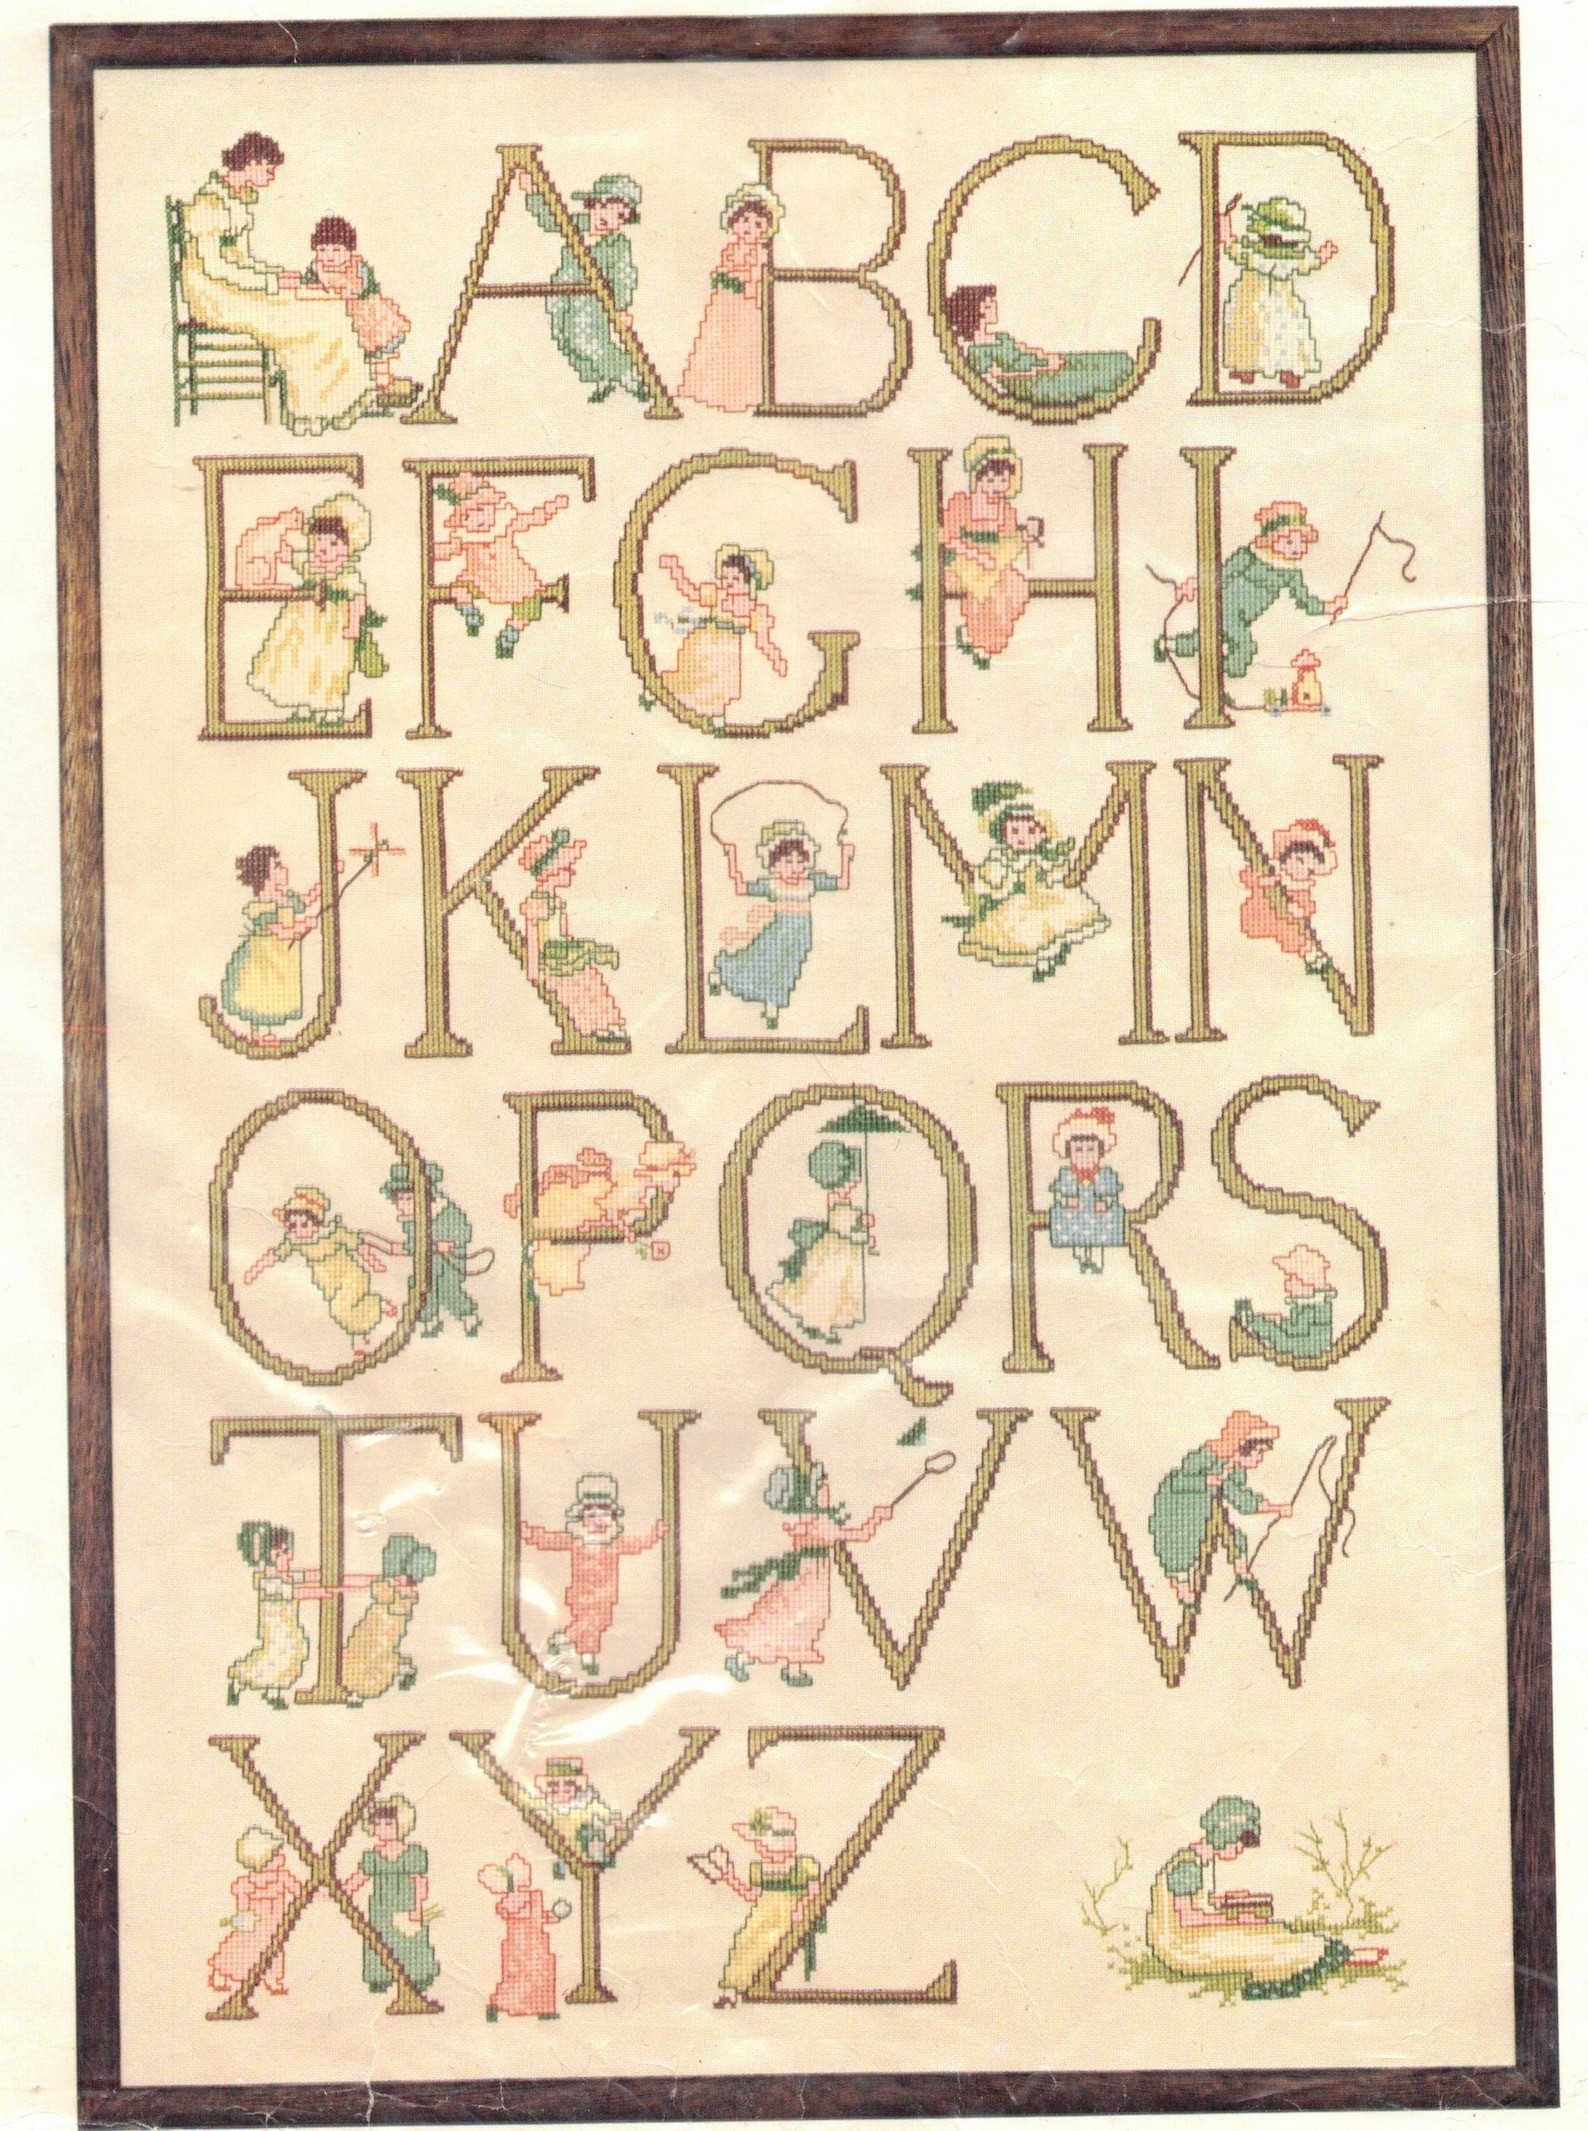 ABCD
EFGHI
JKLMN
OPQRS
TUVW
XYZ